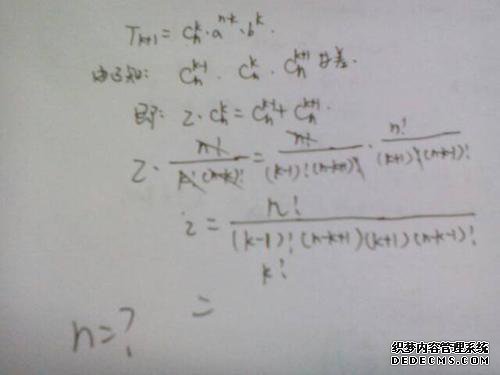 T_{k+1} = C_n^k · a^{n-k} · b^k.
由已知: C_n^{k-1} . C_n^k . C_n^{k+1} 等差.
即: 2 · C_n^k = C_n^{k-1} + C_n^{k+1}.
2 · \frac{n!}{k!(n-k)!} = \frac{n!}{(k-1)!(n-k+1)!} · \frac{n!}{(k+1)!(n-k-1)!}
2 = \frac{n!}{(k-1)!(n-k+1)(k+1)(n-k-1)!}
k!
=
n=?
织梦内容管理系统
DEDECMS.COM